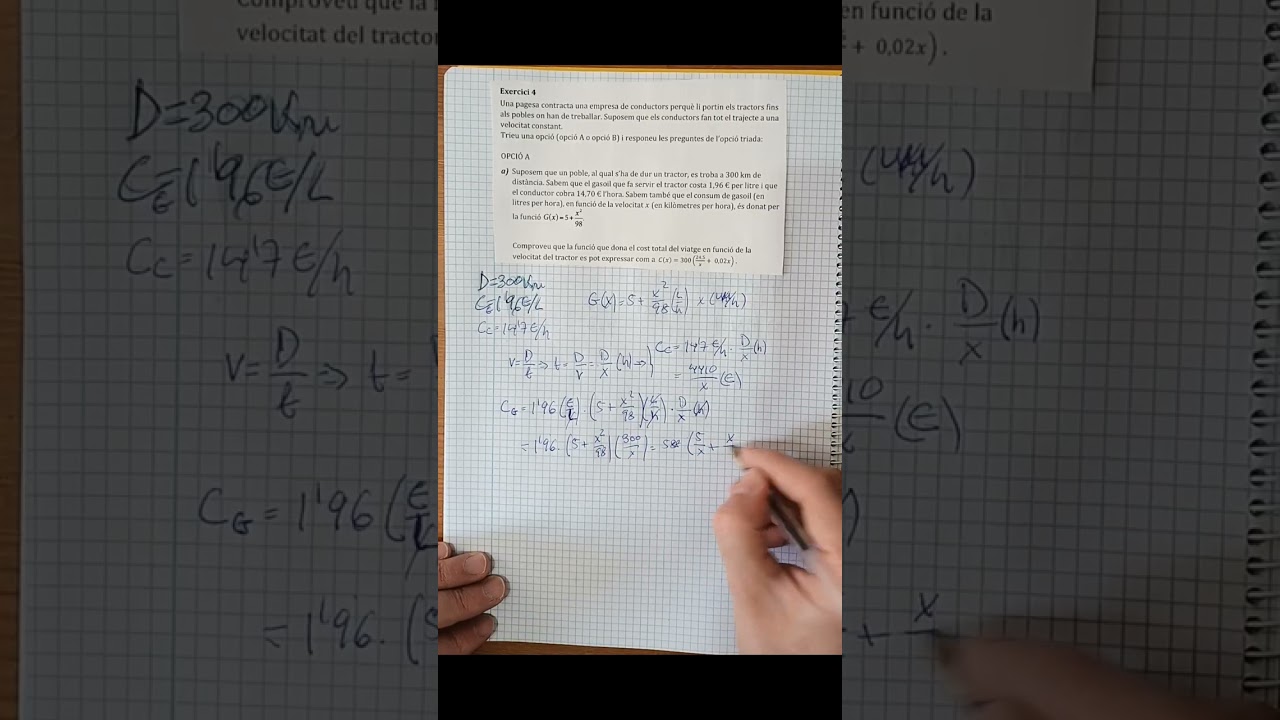 Exercici 4
Una pagesa contracta una empresa de conductors perquè li portin els tractors fins
als pobles on han de treballar. Suposem que els conductors fan tot el trajecte a una
velocitat constant.
Trieu una opció (opció A o opció B) i responeu les preguntes de l'opció triada:
OPCIÓ A
a) Suposem que un poble, al qual s'ha de dur un tractor, es troba a 300 km de
distància. Sabem que el gasoil que fa servir el tractor costa 1,96 € per litre i que
el conductor cobra 14,70 € l'hora. Sabem també que el consum de gasoil (en
litres per hora), en funció de la velocitat x (en kilòmetres per hora), és donat per
la funció G(x) = 5 + x²/98
Comproveu que la funció que dona el cost total del viatge en funció de la
velocitat del tractor es pot expressar com a C(x) = 300(24,5/x + 0,02x).
D=300Km
1'96€/L
G(x)=5+x²/98 (L/h) x (km/h)
Cc=14'7€/h
v=D/t => t=D/v=D/x (h) =>
Cc=14'7 €/h · D/x (h)
=4410/x (€)
C_G=1'96(€/L)·(5+x²/98)(L/h)·D/x (h)
=1'96·(5+x²/98)(300/x)=588(5/x+x